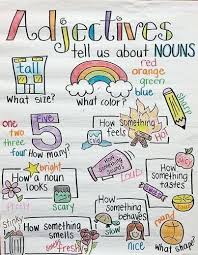 Adjectives
tell us about NOUNS
tall
What size?
red
orange
green
blue
What color?
sharp
one
two
three
four
5
How many?
How something
feels
Hot
How something
sounds
loud
How something
tastes
bright
How a noun
looks
scary
How something
behaves
nice
stinky
How something
smells
fresh
round
what shape?